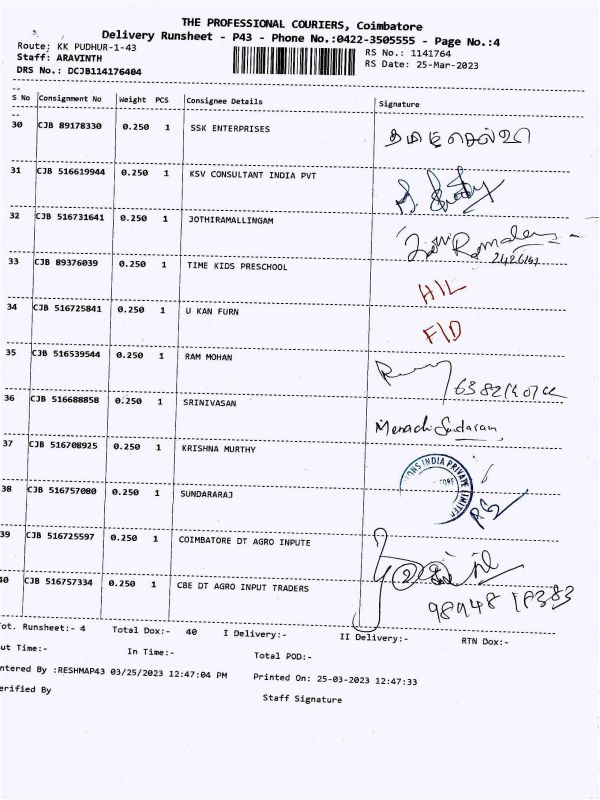 THE PROFESSIONAL COURIERS, Coimbatore
Delivery Runsheet - P43 - Phone No.:0422-3505555 - Page No.:4
Route: KK PUDHUR-1-43 RS No.: 1141764
Staff: ARAVINTH RS Date: 25-Mar-2023
DRS No.: DCJB114176404
S No Consignment No Weight PCS Consignee Details Signature
30 CJB 89178330 0.250 1 SSK ENTERPRISES
31 CJB 516619944 0.250 1 KSV CONSULTANT INDIA PVT
32 CJB 516731641 0.250 1 JOTHIRAMALLINGAM
33 CJB 89376039 0.250 1 TIME KIDS PRESCHOOL H/L
34 CJB 516725841 0.250 1 U KAN FURN F/D
35 CJB 516539544 0.250 1 RAM MOHAN
36 CJB 516688858 0.250 1 SRINIVASAN Menachi Sundaram
37 CJB 516708925 0.250 1 KRISHNA MURTHY
IONS INDIA PRIVATE LIMITED
38 CJB 516757080 0.250 1 SUNDARARAJ
39 CJB 516725597 0.250 1 COIMBATORE DT AGRO INPUTE
40 CJB 516757334 0.250 1 CBE DT AGRO INPUT TRADERS 98948 18383
Tot. Runsheet:- 4 Total Dox:- 40 I Delivery:- II Delivery:- RTN Dox:-
ut Time:- In Time:- Total POD:-
ntered By :RESHMAP43 03/25/2023 12:47:04 PM Printed On: 25-03-2023 12:47:33
erified By Staff Signature